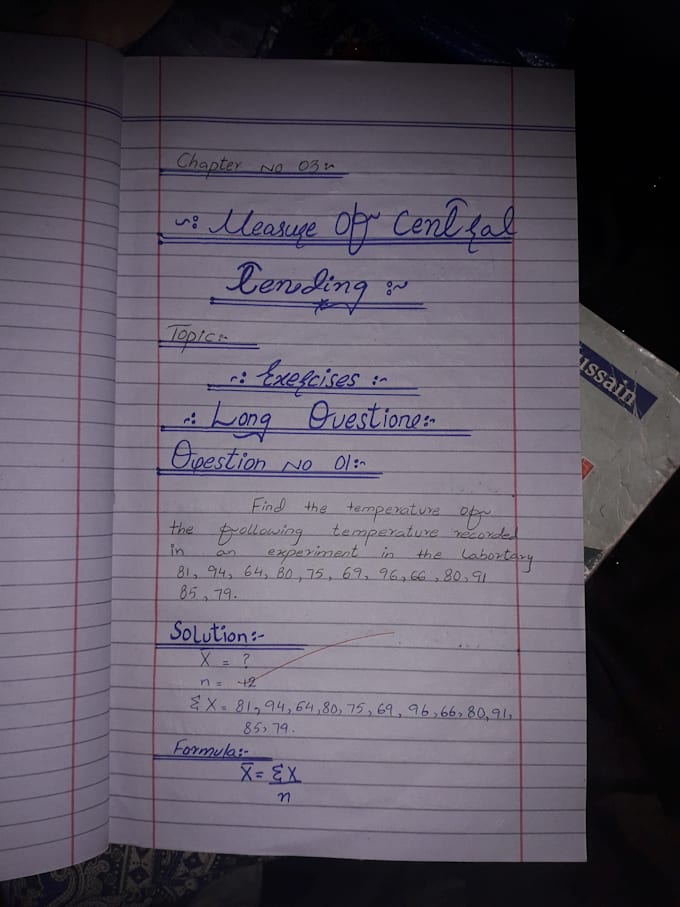 Chapter No 03:~
~: Measure Of Central
Tending :~
Topic:~
~: Exercises :~
~: Long Questione:~
Question No 01:~
Find the temperature of
the following temperature recorded
in an experiment in the Labortory
81, 94, 64, 80, 75, 69, 96, 66, 80, 91
85, 79.
Solution:-
X̄ = ?
n = 12
ΣX = 81, 94, 64, 80, 75, 69, 96, 66, 80, 91,
85, 79.
Formula:-
X̄ = ΣX
n
ussain